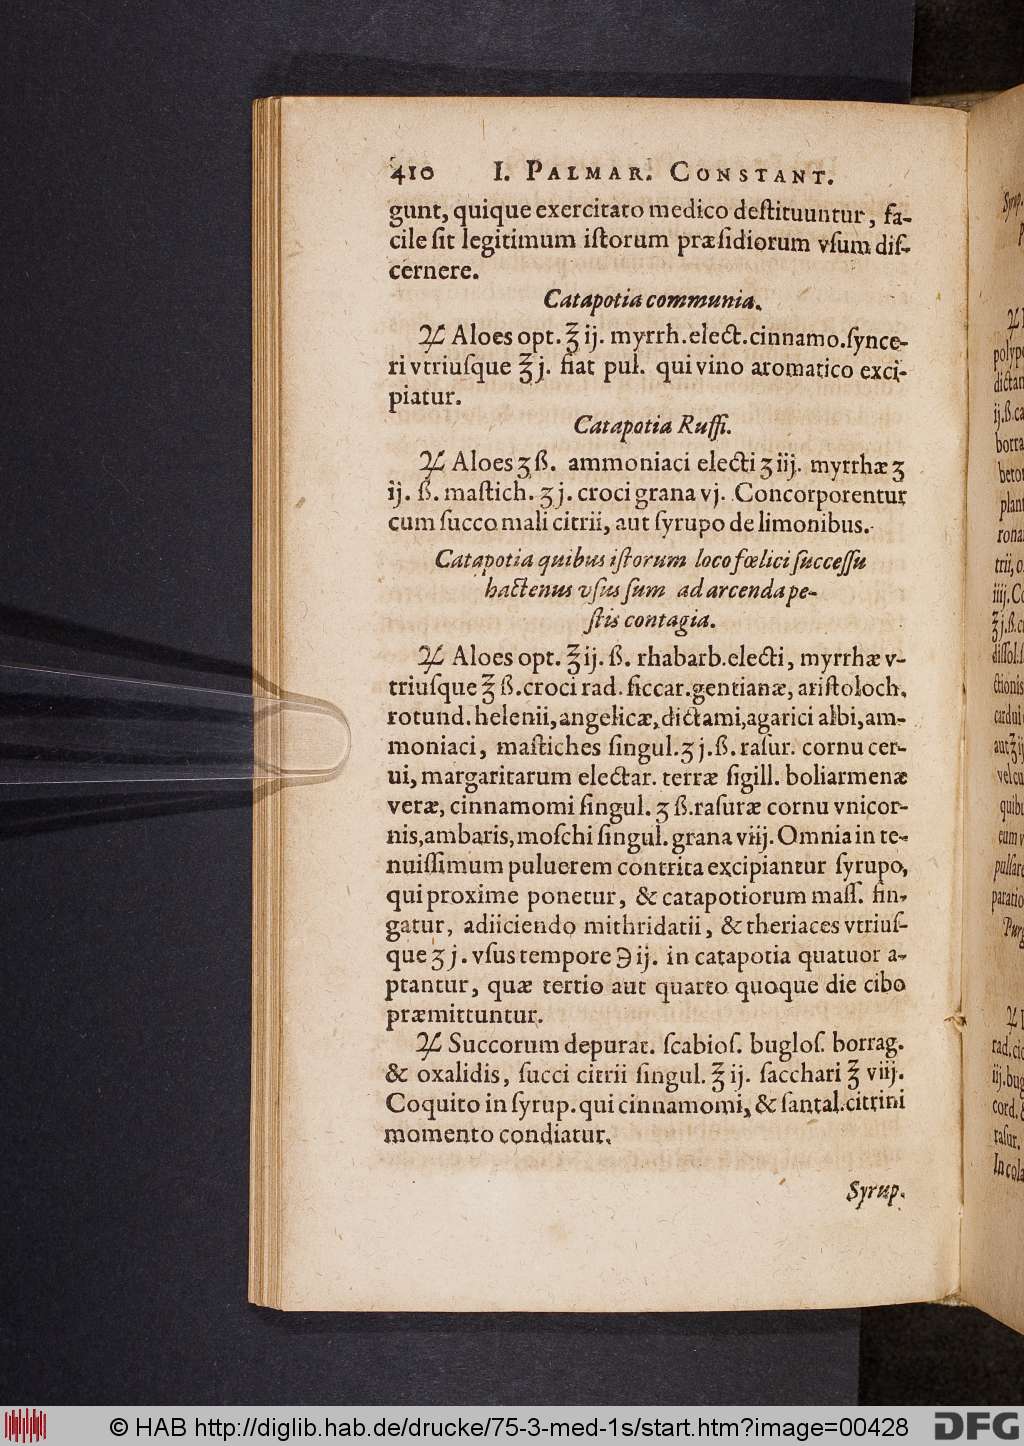 410 I. PALMAR. CONSTANT.
gunt, quique exercitato medico deſtituuntur, fa-
cile ſit legitimum iſtorum præſidiorum vſum diſ-
cernere.
Catapotia communia.
℞ Aloes opt. ℥ ij. myrrh. elect. cinnamo. ſynce-
ri vtriuſque ℥ j. fiat pul. qui vino aromatico exci-
piatur.
Catapotia Ruffi.
℞ Aloes ʒ ß. ammoniaci electi ʒ iij. myrrhæ ʒ
ij. ß. maſtich. ʒ j. croci grana vj. Concorporentur
cum ſucco mali citrii, aut ſyrupo de limonibus.
Catapotia quibus iſtorum loco fœlici ſucceſſu
hactenus vſus ſum ad arcenda pe-
ſtis contagia.
℞ Aloes opt. ℥ ij. ß. rhabarb. electi, myrrhæ v-
triuſque ℥ ß. croci rad. ſiccar. gentianæ, ariſtoloch.
rotund. helenii, angelicæ, dictami, agarici albi, am-
moniaci, maſtiches ſingul. ʒ j. ß. raſur. cornu cer-
ui, margaritarum electar. terræ ſigill. boliarmenæ
veræ, cinnamomi ſingul. ʒ ß. raſuræ cornu vnicor-
nis, ambaris, moſchi ſingul. grana viij. Omnia in te-
nuiſſimum puluerem contrita excipiantur ſyrupo,
qui proxime ponetur, & catapotiorum maſſ. fin-
gatur, adiiciendo mithridatii, & theriaces vtriuſ-
que ʒ j. vſus tempore ℈ ij. in catapotia quatuor a-
ptantur, quæ tertio aut quarto quoque die cibo
præmittuntur.
℞ Succorum depurat. ſcabioſ. bugloſ. borrag.
& oxalidis, ſucci citrii ſingul. ℥ ij. ſacchari ℥ viij.
Coquito in ſyrup. qui cinnamomi, & ſantal. citrini
momento condiatur.
Syrup.
Syrup.
polypo
dictam
ij. ß. ca
borra
beto
plant
rona
trii, o
iiij. C
℥ j. ß. c
diſſol. ſ
ctionis
cardui
aut ℥ ij
vel cu
quibu
eum v
pulſare
paratio
Purg
rad. cic
iij. bug
cord. &
raſur.
In cola
© HAB http://diglib.hab.de/drucke/75-3-med-1s/start.htm?image=00428
DFG